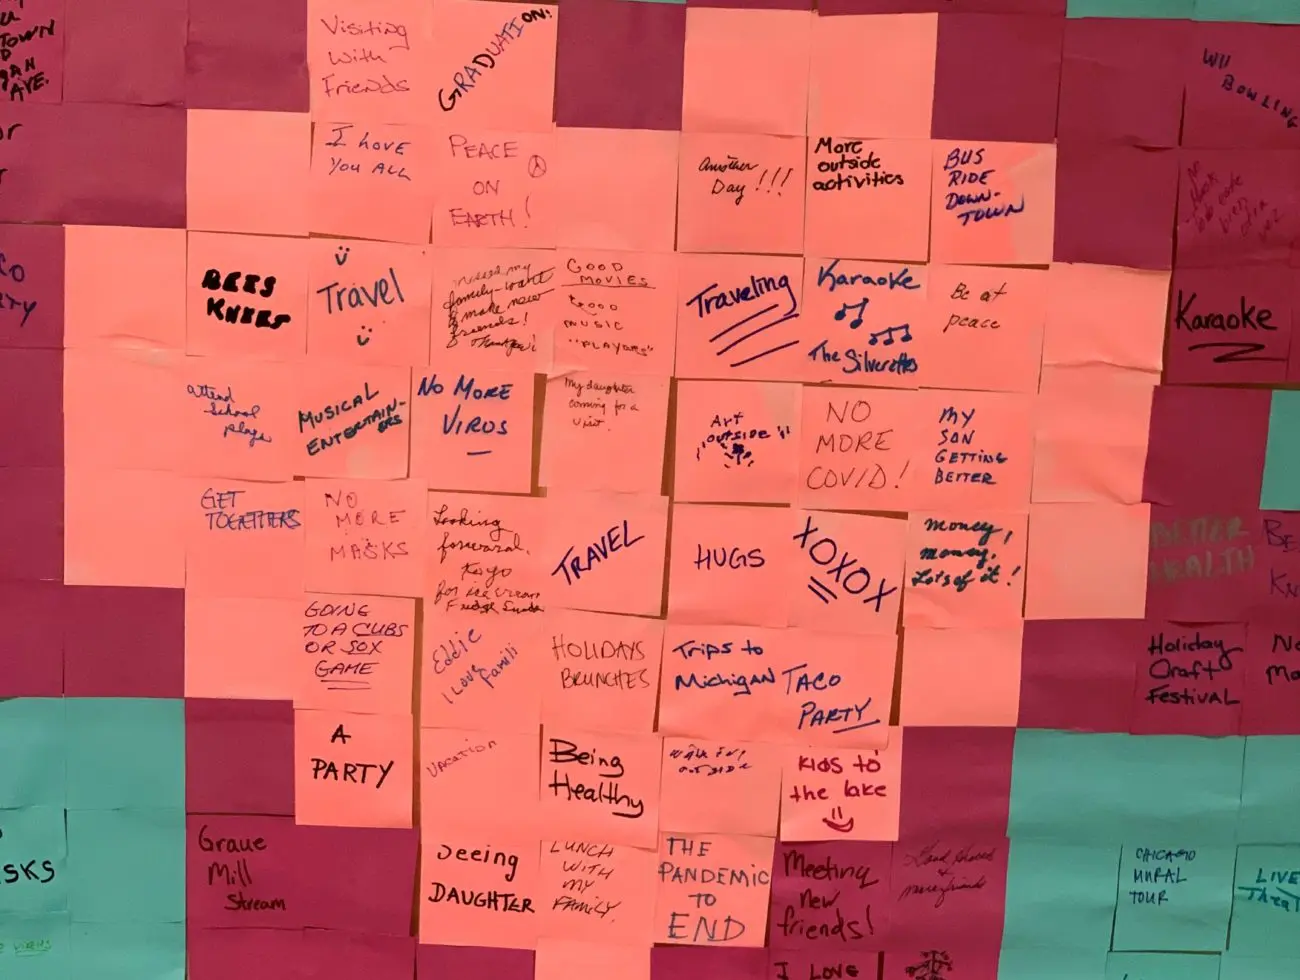 TOWN
AVE.
Visiting
With
Friends
GRADUATION!
WII
BOWLING
I LOVE
YOU ALL
PEACE
ON
EARTH!
Another
Day!!!
More
outside
activities
BUS
RIDE
DOWN-
TOWN
BEES
KNEES
Travel
missed my
family-want
to make new
friends!
GOOD
MOVIES
GOOD
MUSIC
"PLAYORS"
Traveling
Karaoke
The Silverettes
Be at
peace
Karaoke
attend
School
plays
MUSICAL
ENTERTAIN-
ERS
NO MORE
VIRUS
My daughter
coming for a
visit.
Art
"outside"
NO
MORE
COVID!
MY
SON
GETTING
BETTER
GET
TOGETHERS
NO
MORE
MASKS
Looking
forward
to go
for ice cream
Fudge
TRAVEL
HUGS
XOXOX
money,
money,
Lots of it!
BETTER
HEALTH
BE
KN
GOING
TO A CUBS
OR SOX
GAME
Eddie
I Love Famili
HOLIDAYS
BRUNCHES
Trips to
Michigan
TACO
PARTY
Holiday
Craft
Festival
No
Mo
A
PARTY
VACATION
Being
Healthy
outside
Kids to
the lake
Graue
Mill
Stream
Seeing
DAUGHTER
LUNCH
WITH
MY
FAMILY
THE
PANDEMIC
TO
END
Meeting
new
friends!
more friends
CHICAGO
MURAL
TOUR
LIVE
SKS
VIRUS
I LOVE